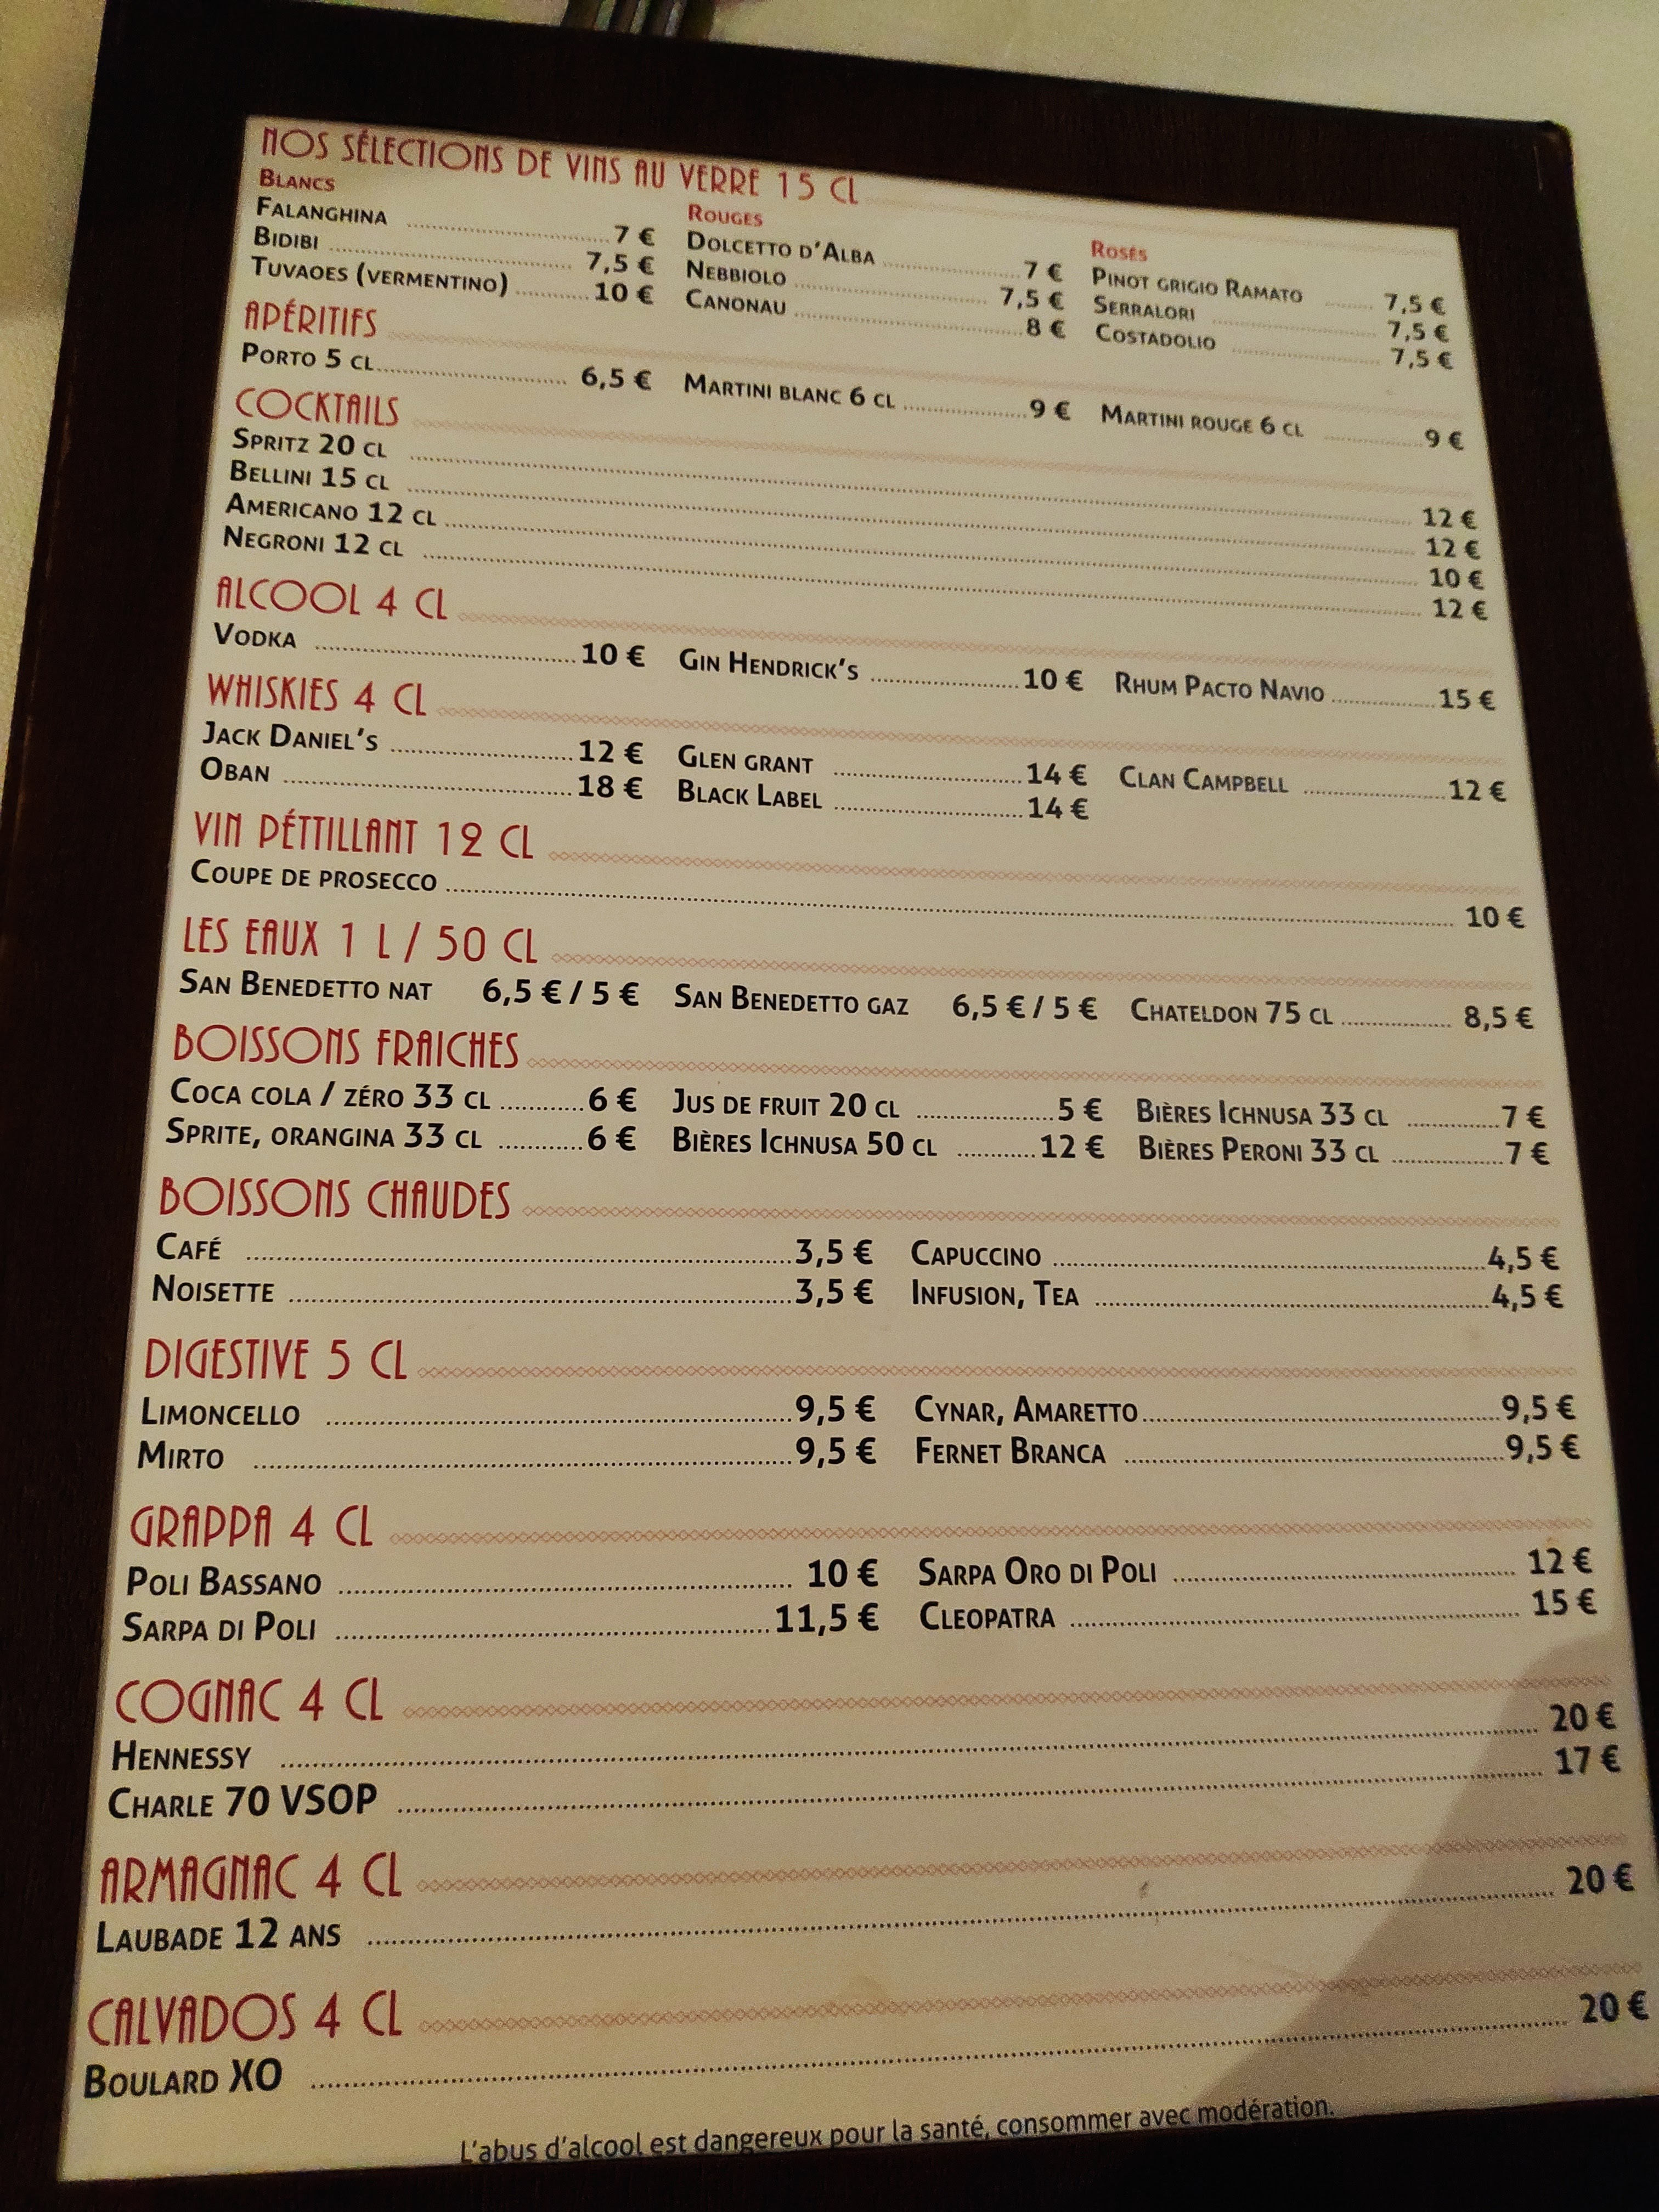 NOS SÉLECTIONS DE VINS AU VERRE 15 CL
BLANCS
FALANGHINA 7 €
BIDIBI 7,5 €
TUVAOES (VERMENTINO) 10 €
ROUGES
DOLCETTO D'ALBA 7 €
NEBBIOLO 7,5 €
CANONAU 8 €
ROSÉS
PINOT GRIGIO RAMATO 7,5 €
SERRALORI 7,5 €
COSTADOLIO 7,5 €
APÉRITIFS
PORTO 5 CL 6,5 € MARTINI BLANC 6 CL 9 € MARTINI ROUGE 6 CL 9 €
COCKTAILS
SPRITZ 20 CL 12 €
BELLINI 15 CL 12 €
AMERICANO 12 CL 10 €
NEGRONI 12 CL 12 €
ALCOOL 4 CL
VODKA 10 € GIN HENDRICK'S 10 € RHUM PACTO NAVIO 15 €
WHISKIES 4 CL
JACK DANIEL'S 12 € GLEN GRANT 14 € CLAN CAMPBELL 12 €
OBAN 18 € BLACK LABEL 14 €
VIN PÉTTILLANT 12 CL
COUPE DE PROSECCO 10 €
LES EAUX 1 L / 50 CL
SAN BENEDETTO NAT 6,5 € / 5 € SAN BENEDETTO GAZ 6,5 € / 5 € CHATELDON 75 CL 8,5 €
BOISSONS FRAICHES
COCA COLA / ZÉRO 33 CL 6 € JUS DE FRUIT 20 CL 5 € BIÈRES ICHNUSA 33 CL 7 €
SPRITE, ORANGINA 33 CL 6 € BIÈRES ICHNUSA 50 CL 12 € BIÈRES PERONI 33 CL 7 €
BOISSONS CHAUDES
CAFÉ 3,5 € CAPUCCINO 4,5 €
NOISETTE 3,5 € INFUSION, TEA 4,5 €
DIGESTIVE 5 CL
LIMONCELLO 9,5 € CYNAR, AMARETTO 9,5 €
MIRTO 9,5 € FERNET BRANCA 9,5 €
GRAPPA 4 CL
POLI BASSANO 10 € SARPA ORO DI POLI 12 €
SARPA DI POLI 11,5 € CLEOPATRA 15 €
COGNAC 4 CL
HENNESSY 20 €
CHARLE 70 VSOP 17 €
ARMAGNAC 4 CL
LAUBADE 12 ANS 20 €
CALVADOS 4 CL
BOULARD XO 20 €
L'abus d'alcool est dangereux pour la santé, consommer avec modération.